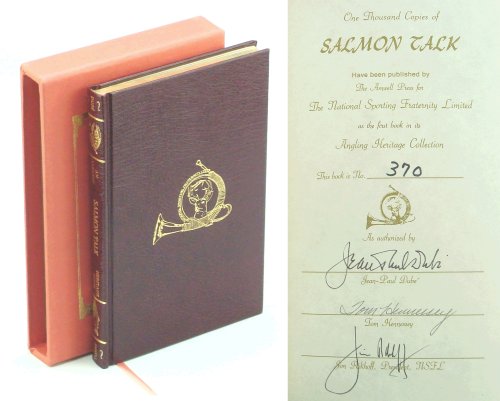 SALMON TALK
One Thousand Copies of
SALMON TALK
Have been published by
The Amwell Press for
The National Sporting Fraternity Limited
as the first book in its
Angling Heritage Collection
This book is No. 370
As authorized by
Jean Paul Dubé
Jean-Paul Dubé
Tom Hennessey
Tom Hennessey
Jim Rikhoff
Jim Rikhoff, President, NSFL